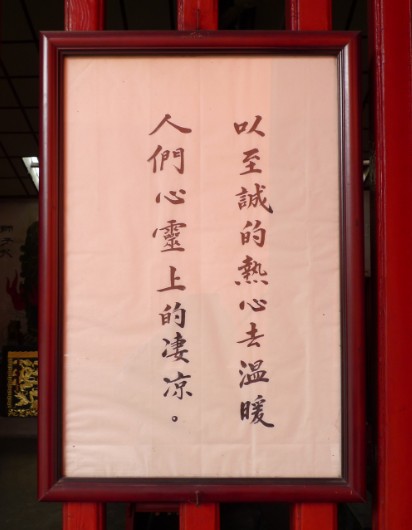 以至誠的熱心去溫暖
人們心靈上的凄凉。